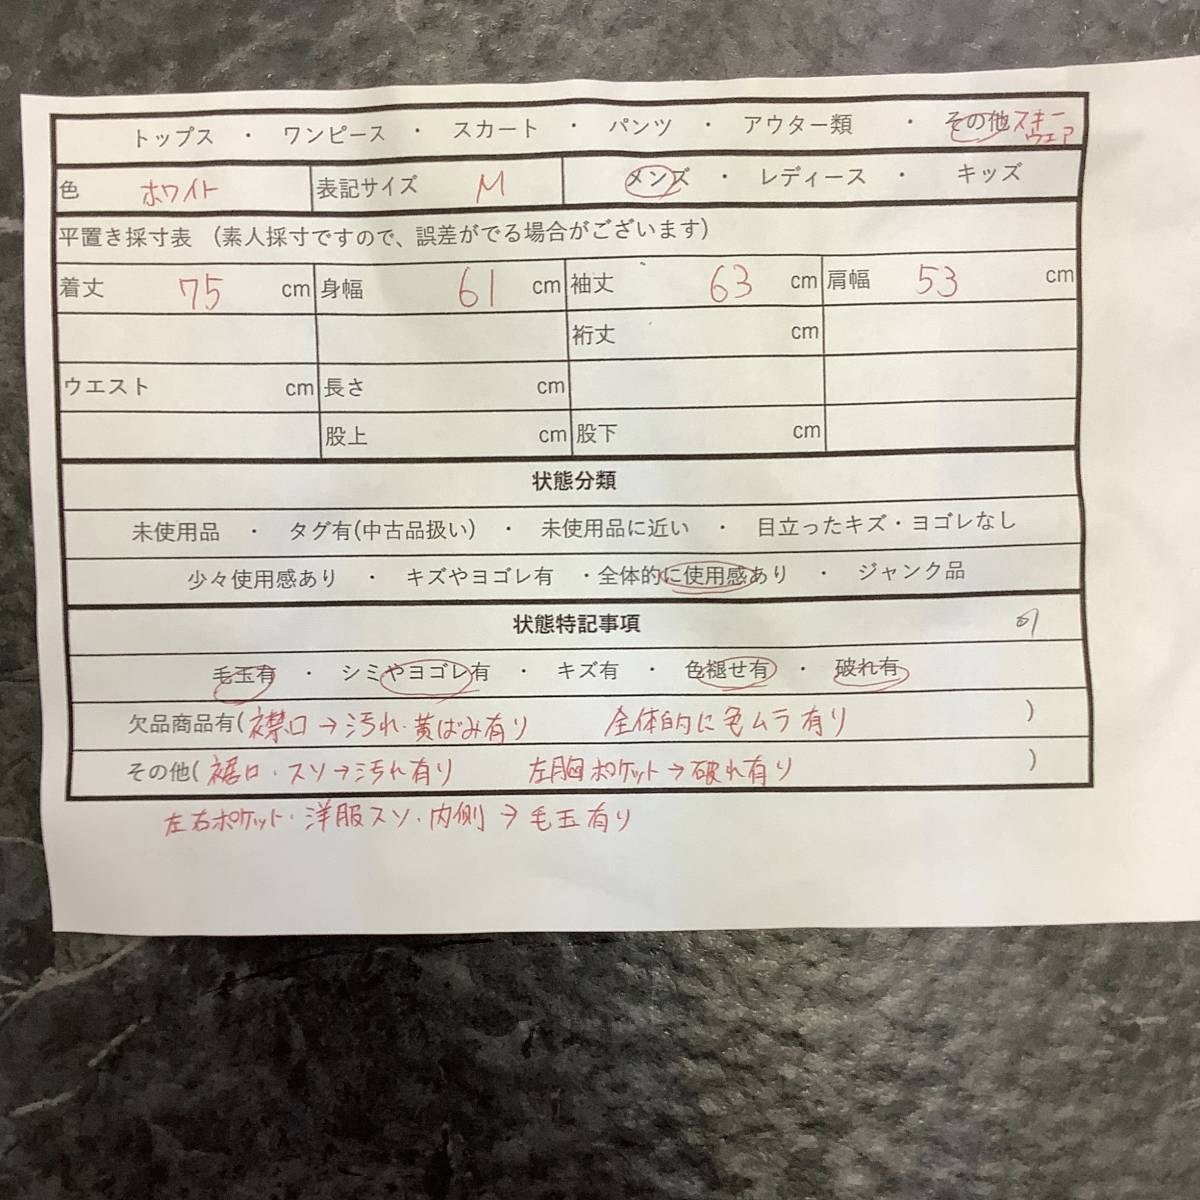 トップス ・ ワンピース ・ スカート ・ パンツ ・ アウター類 ・ その他 スキーウェア
色 ホワイト 表記サイズ M メンズ ・ レディース ・ キッズ
平置き採寸表 (素人採寸ですので、誤差がでる場合がございます)
着丈 75 cm 身幅 61 cm 袖丈 63 cm 肩幅 53 cm
裄丈 cm
ウエスト cm 長さ cm
股上 cm 股下 cm
状態分類
未使用品 ・ タグ有(中古品扱い) ・ 未使用品に近い ・ 目立ったキズ・ヨゴレなし
少々使用感あり ・ キズやヨゴレ有 ・全体的に使用感あり ・ ジャンク品
状態特記事項
毛玉有 ・ シミやヨゴレ有 ・ キズ有 ・ 色褪せ有 ・ 破れ有
欠品商品有( 襟口→汚れ・黄ばみ有り 全体的に色ムラ有り )
その他( 裾口・スソ→汚れ有り 左胸ポケット→破れ有り )
左右ポケット・洋服スソ・内側→毛玉有り